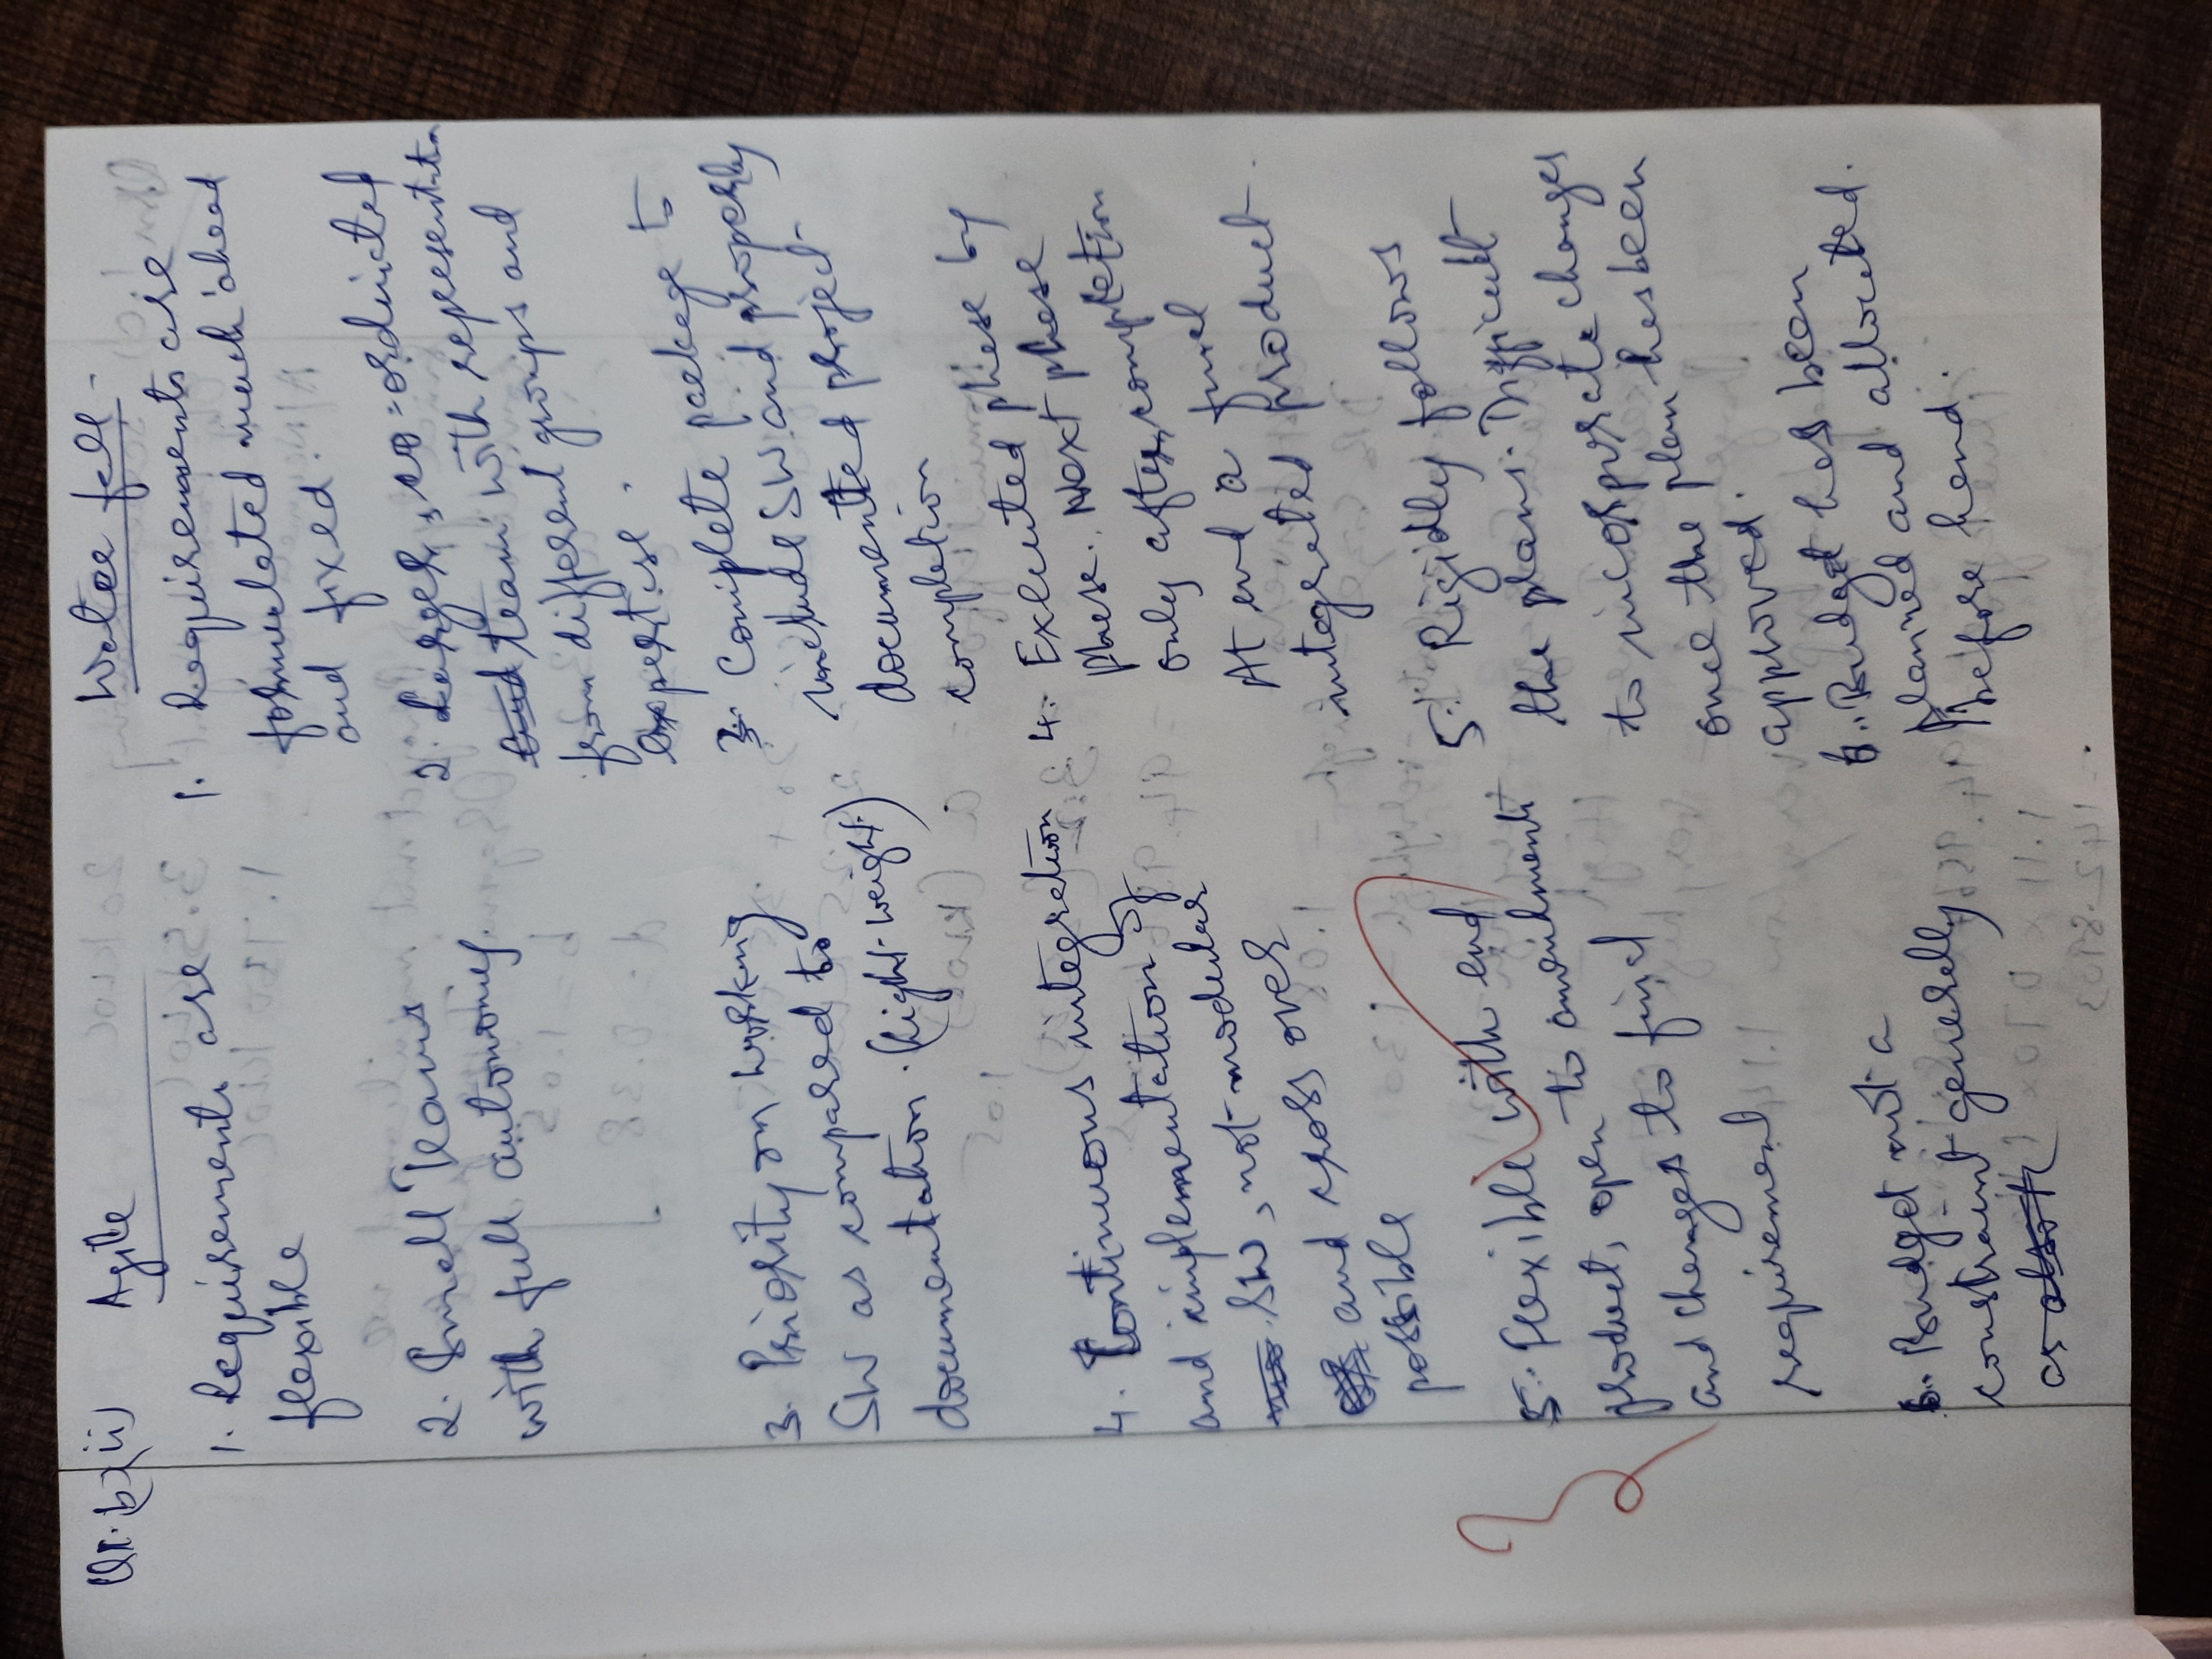 Q1. (b) (ii) Agile
1. Requirements are
flexible
2. Small Teams
with full autonomy.
3. Priority on working
SW as compared to
documentation. (light weight)
4. Continuous integration
and implementation of
SW, not modular
and cross over
possible
5. Flexible with end
product, open to amendments
and changes to final
requirement
6. Budget not a
constraint generally
as
3
Water fall -
1. Requirements are
formulated much ahead
and fixed.
2. Larger, co-ordinated
and team with representation
from different groups and
expertise.
3. Complete package to
include SW and properly
documented project
completion
4. Executed phase by
phase. Next phase
only after completion
At end a final
integrated product.
5. Rigidly follows
the plans. Difficult
to incorporate changes
once the plan has been
approved.
6. Budget has been
planned and allocated
before hand.